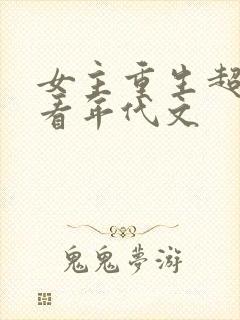 女主重生超
看年代文
鬼鬼夢游